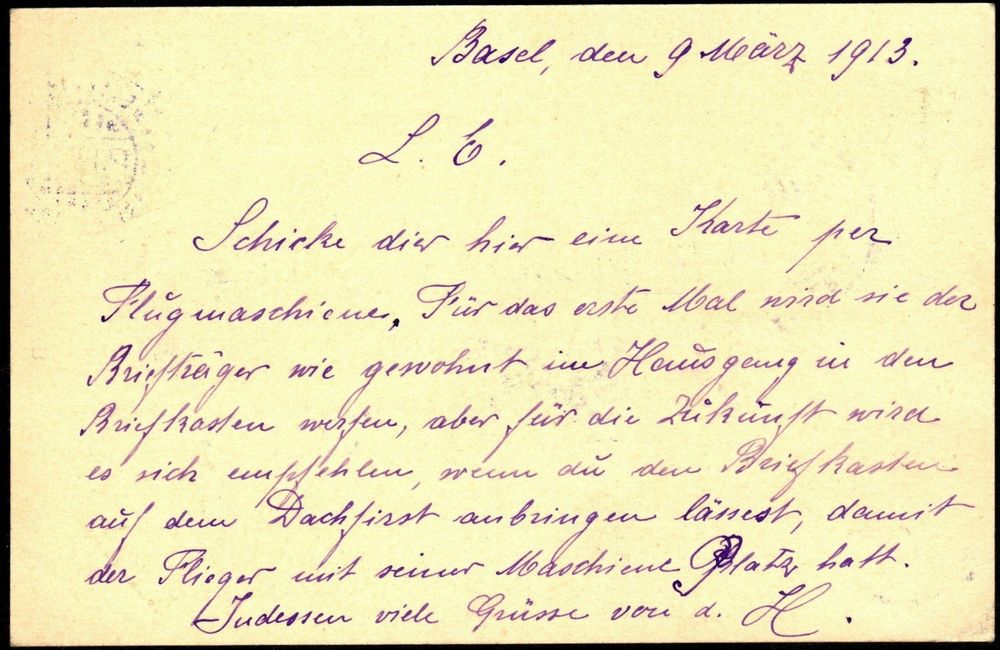 Basel, den 9 März 1913.
L. E.
Schicke dier hier eine Karte per
Flugmaschiene. Für das erste Mal wird sie der
Briefträger wie gewohnt im Hausgang in den
Briefkasten werfen, aber für die Zukunft wird
es sich empfehlen, wenn du den Briefkasten
auf dem Dachfirst anbringen lässest, damit
der Flieger mit seiner Maschiene Platz hatt.
Indessen viele Grüsse von d. H.